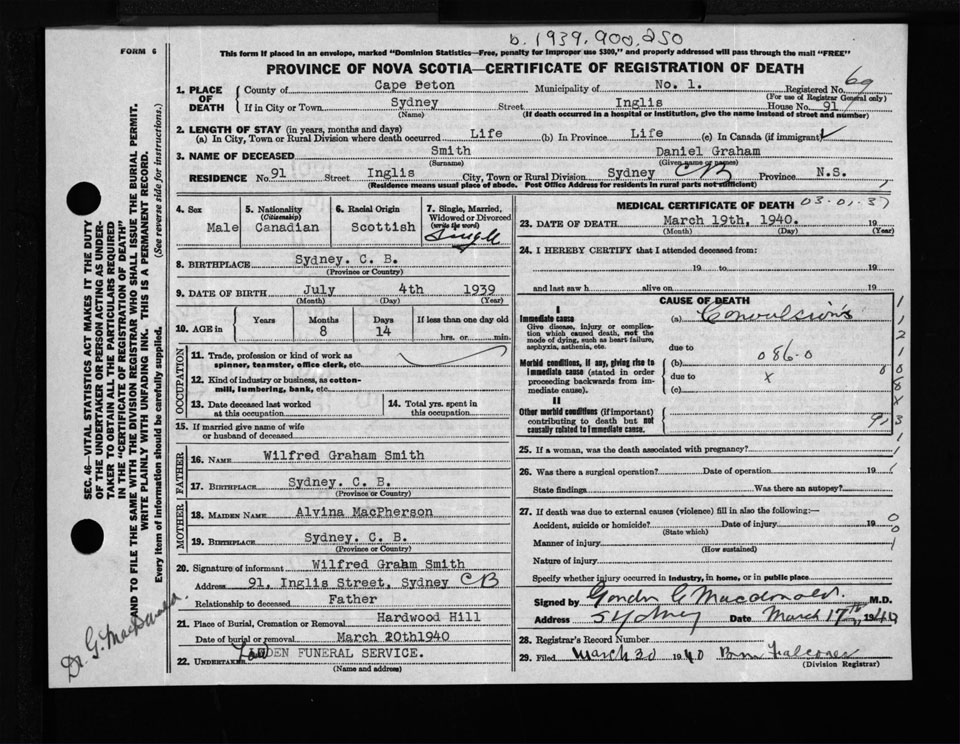 b. 1939.900,250
FORM 6
This form if placed in an envelope, marked "Dominion Statistics—Free, penalty for improper use $300," and properly addressed will pass through the mail "FREE"
PROVINCE OF NOVA SCOTIA—CERTIFICATE OF REGISTRATION OF DEATH
SEC. 46—VITAL STATISTICS ACT MAKES IT THE DUTY
OF THE UNDERTAKER OR PERSON ACTING AS UNDER-
TAKER TO OBTAIN ALL THE PARTICULARS REQUIRED
IN THE "CERTIFICATE OF REGISTRATION OF DEATH"
AND TO FILE THE SAME WITH THE DIVISION REGISTRAR WHO SHALL ISSUE THE BURIAL PERMIT.
WRITE PLAINLY WITH UNFADING INK. THIS IS A PERMANENT RECORD.
Every item of information should be carefully supplied. (See reverse side for instructions.)
Dr. G. MacDonald.
1. PLACE OF DEATH County of Cape Beton Municipality of No. 1. Registered No. 69
(For use of Registrar General only)
If in City or Town Sydney Street Inglis House No. 91
(Name) (If death occurred in a hospital or institution, give the name instead of street and number)
2. LENGTH OF STAY (in years, months and days)
(a) In City, Town or Rural Division where death occurred Life (b) In Province Life (c) In Canada (if immigrant)
3. NAME OF DECEASED Smith Daniel Graham
(Surname) (Given name or names)
RESIDENCE No. 91 Street Inglis City, Town or Rural Division Sydney CB Province N.S.
(Residence means usual place of abode. Post Office Address for residents in rural parts not sufficient)
4. Sex Male
5. Nationality (Citizenship) Canadian
6. Racial Origin Scottish
7. Single, Married, Widowed or Divorced (write the word) Single
8. BIRTHPLACE Sydney. C. B.
(Province or Country)
9. DATE OF BIRTH July 4th 1939
(Month) (Day) (Year)
10. AGE in Years Months 8 Days 14 If less than one day old hrs. or min.
OCCUPATION
11. Trade, profession or kind of work as spinner, teamster, office clerk, etc.
12. Kind of industry or business, as cotton-mill, lumbering, bank, etc.
13. Date deceased last worked at this occupation
14. Total yrs. spent in this occupation
15. If married give name of wife or husband of deceased
FATHER
16. NAME Wilfred Graham Smith
17. BIRTHPLACE Sydney. C. B.
(Province or Country)
MOTHER
18. MAIDEN NAME Alvina MacPherson
19. BIRTHPLACE Sydney. C. B.
(Province or Country)
20. Signature of informant Wilfred Grahm Smith
Address 91, Inglis Street, Sydney CB
Relationship to deceased Father
21. Place of Burial, Cremation or Removal Hardwood Hill
Date of burial or removal March 20th1940
22. UNDERTAKER FUNERAL SERVICE.
(Name and address)
MEDICAL CERTIFICATE OF DEATH 03-01-37
23. DATE OF DEATH March 19th, 1940. 19
(Month) (Day) (Year)
24. I HEREBY CERTIFY that I attended deceased from:
19 to 19
and last saw h alive on 19
CAUSE OF DEATH
I
Immediate cause (a) Convulsions
Give disease, injury or complication which caused death, not the mode of dying, such as heart failure, asphyxia, asthenia, etc.
due to
Morbid conditions, if any, giving rise to immediate cause (stated in order proceeding backwards from immediate cause).
(b) 086.0
due to x
(c)
II
Other morbid conditions (if important) contributing to death but not causally related to immediate cause.
25. If a woman, was the death associated with pregnancy?
26. Was there a surgical operation? Date of operation 19
State findings Was there an autopsy?
27. If death was due to external causes (violence) fill in also the following:—
Accident, suicide or homicide? Date of injury 19
(State which)
Manner of injury
(How sustained)
Nature of injury
Specify whether injury occurred in industry, in home, or in public place
Signed by Gordon C Macdonald. M.D.
Address Sydney Date March 1940
28. Registrar's Record Number
29. Filed March 30 1940 Falconer
(Division Registrar)